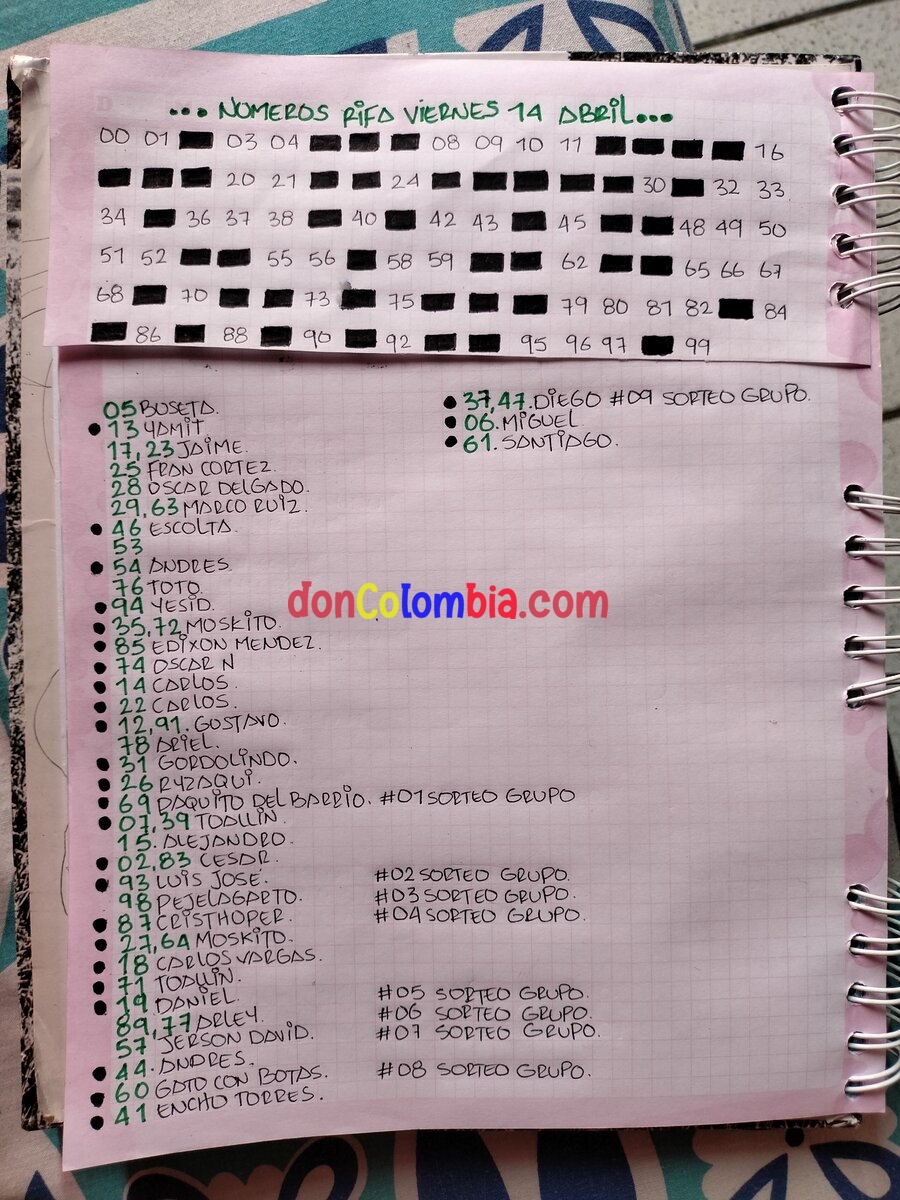 ...NUMEROS RIFA VIERNES 14 ABRIL...
00 01 03 04 08 09 10 11 16
20 21 24 30 32 33
34 36 37 38 40 42 43 45 48 49 50
51 52 55 56 58 59 62 65 66 67
68 70 73 75 79 80 81 82 84
86 88 90 92 95 96 97 99
05 BUSETA.
• 13 YAMIT
17, 23 JAIME.
25 FRAN CORTEZ.
28 OSCAR DELGADO.
29, 63 MARCO RUIZ.
• 46 ESCOLTA.
53
• 54 ANDRES.
76 TOTO.
• 94 YESID.
• 35, 72 MOSKITO.
• 85 EDIXON MENDEZ.
• 74 OSCAR N
• 14 CARLOS.
• 22 CARLOS.
• 12, 91. GUSTAVO.
78 ARIEL.
• 31 GORDOLINDO.
• 26 RYZAQUI.
• 69 PAQUITO DEL BARRIO. #01 SORTEO GRUPO
• 07, 39 TOALLIN.
15. ALEJANDRO.
• 02, 83 CESAR.
• 93 LUIS JOSE. #02 SORTEO GRUPO.
98 PEJELAGARTO. #03 SORTEO GRUPO.
• 87 CRISTHOPER. #04 SORTEO GRUPO.
• 27, 64 MOSKITO.
• 18 CARLOS VARGAS.
• 71 TOALLIN.
• 19 DANIEL. #05 SORTEO GRUPO.
89, 77 ARLEY. #06 SORTEO GRUPO.
57 JERSON DAVID. #07 SORTEO GRUPO.
• 44. ANDRES.
• 60 GATO CON BOTAS. #08 SORTEO GRUPO.
• 41 ENCHO TORRES.
• 37, 47. DIEGO #09 SORTEO GRUPO.
• 06. MIGUEL
• 61. SANTIAGO.
donColombia.com